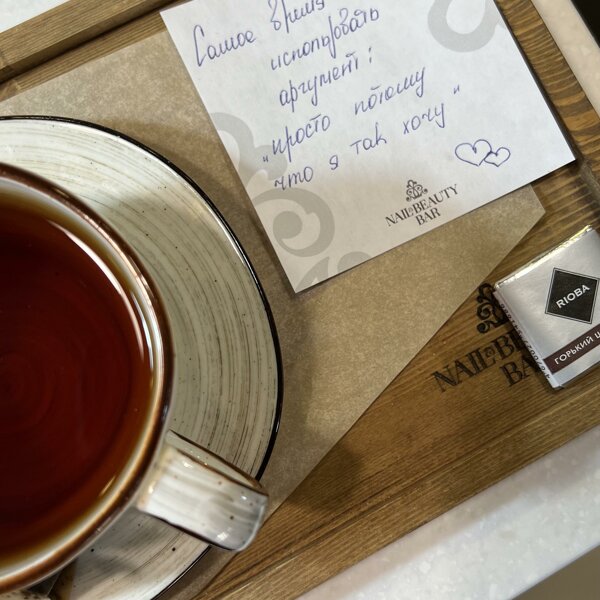 Самое время
использовать
аргумент:
„просто потому
что я так хочу"
NAIL&BEAUTY
BAR
RIOBA
ГОРЬКИЙ Ш
NAIL&BE
BAR